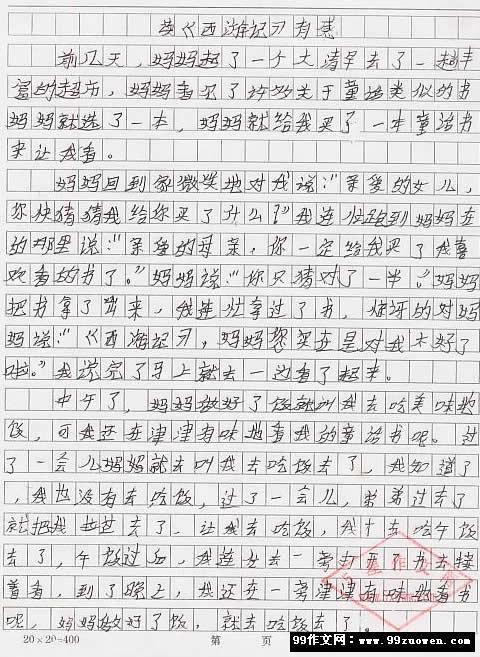 读《西游记》有感
前几天，妈妈起了一个大清早去了一趟丰
富的超市，妈妈看见了许多关于童话类似的书
妈妈就选了一本，妈妈就给我买了一本童话书
来让我看。
妈妈回到家微笑地对我说：“亲爱的女儿，
你快猜猜我给你买了什么？”我连忙跑到妈妈在
的那里说：“亲爱的母亲，你一定给我买了我喜
欢看的书了。”妈妈说：“你只猜对了一半。”妈妈
把书拿了出来，我连忙拿过了书，惊讶的对妈
妈说：“《西游记》，妈妈您实在是对我太好了
啦。”我说完了马上就去一边看了起来。
中午了，妈妈做好了饭就叫我去吃美味的
饭，可我还在津津有味地看我的童话书呢。过
了一会儿妈妈就去叫我去吃饭去了，我知道了
，我也没有去吃饭，过了一会儿，弟弟过去了
就把我 过去了，让我去吃饭，我才去吃午饭
去了，午饭过后，我连忙去一旁 了书去接
着看，到了晚上，我还在一旁津津有味的看书
呢，妈妈做好了饭，就去吃饭去了。
20×20=400 第 页
99作文网：www.99zuowen.com